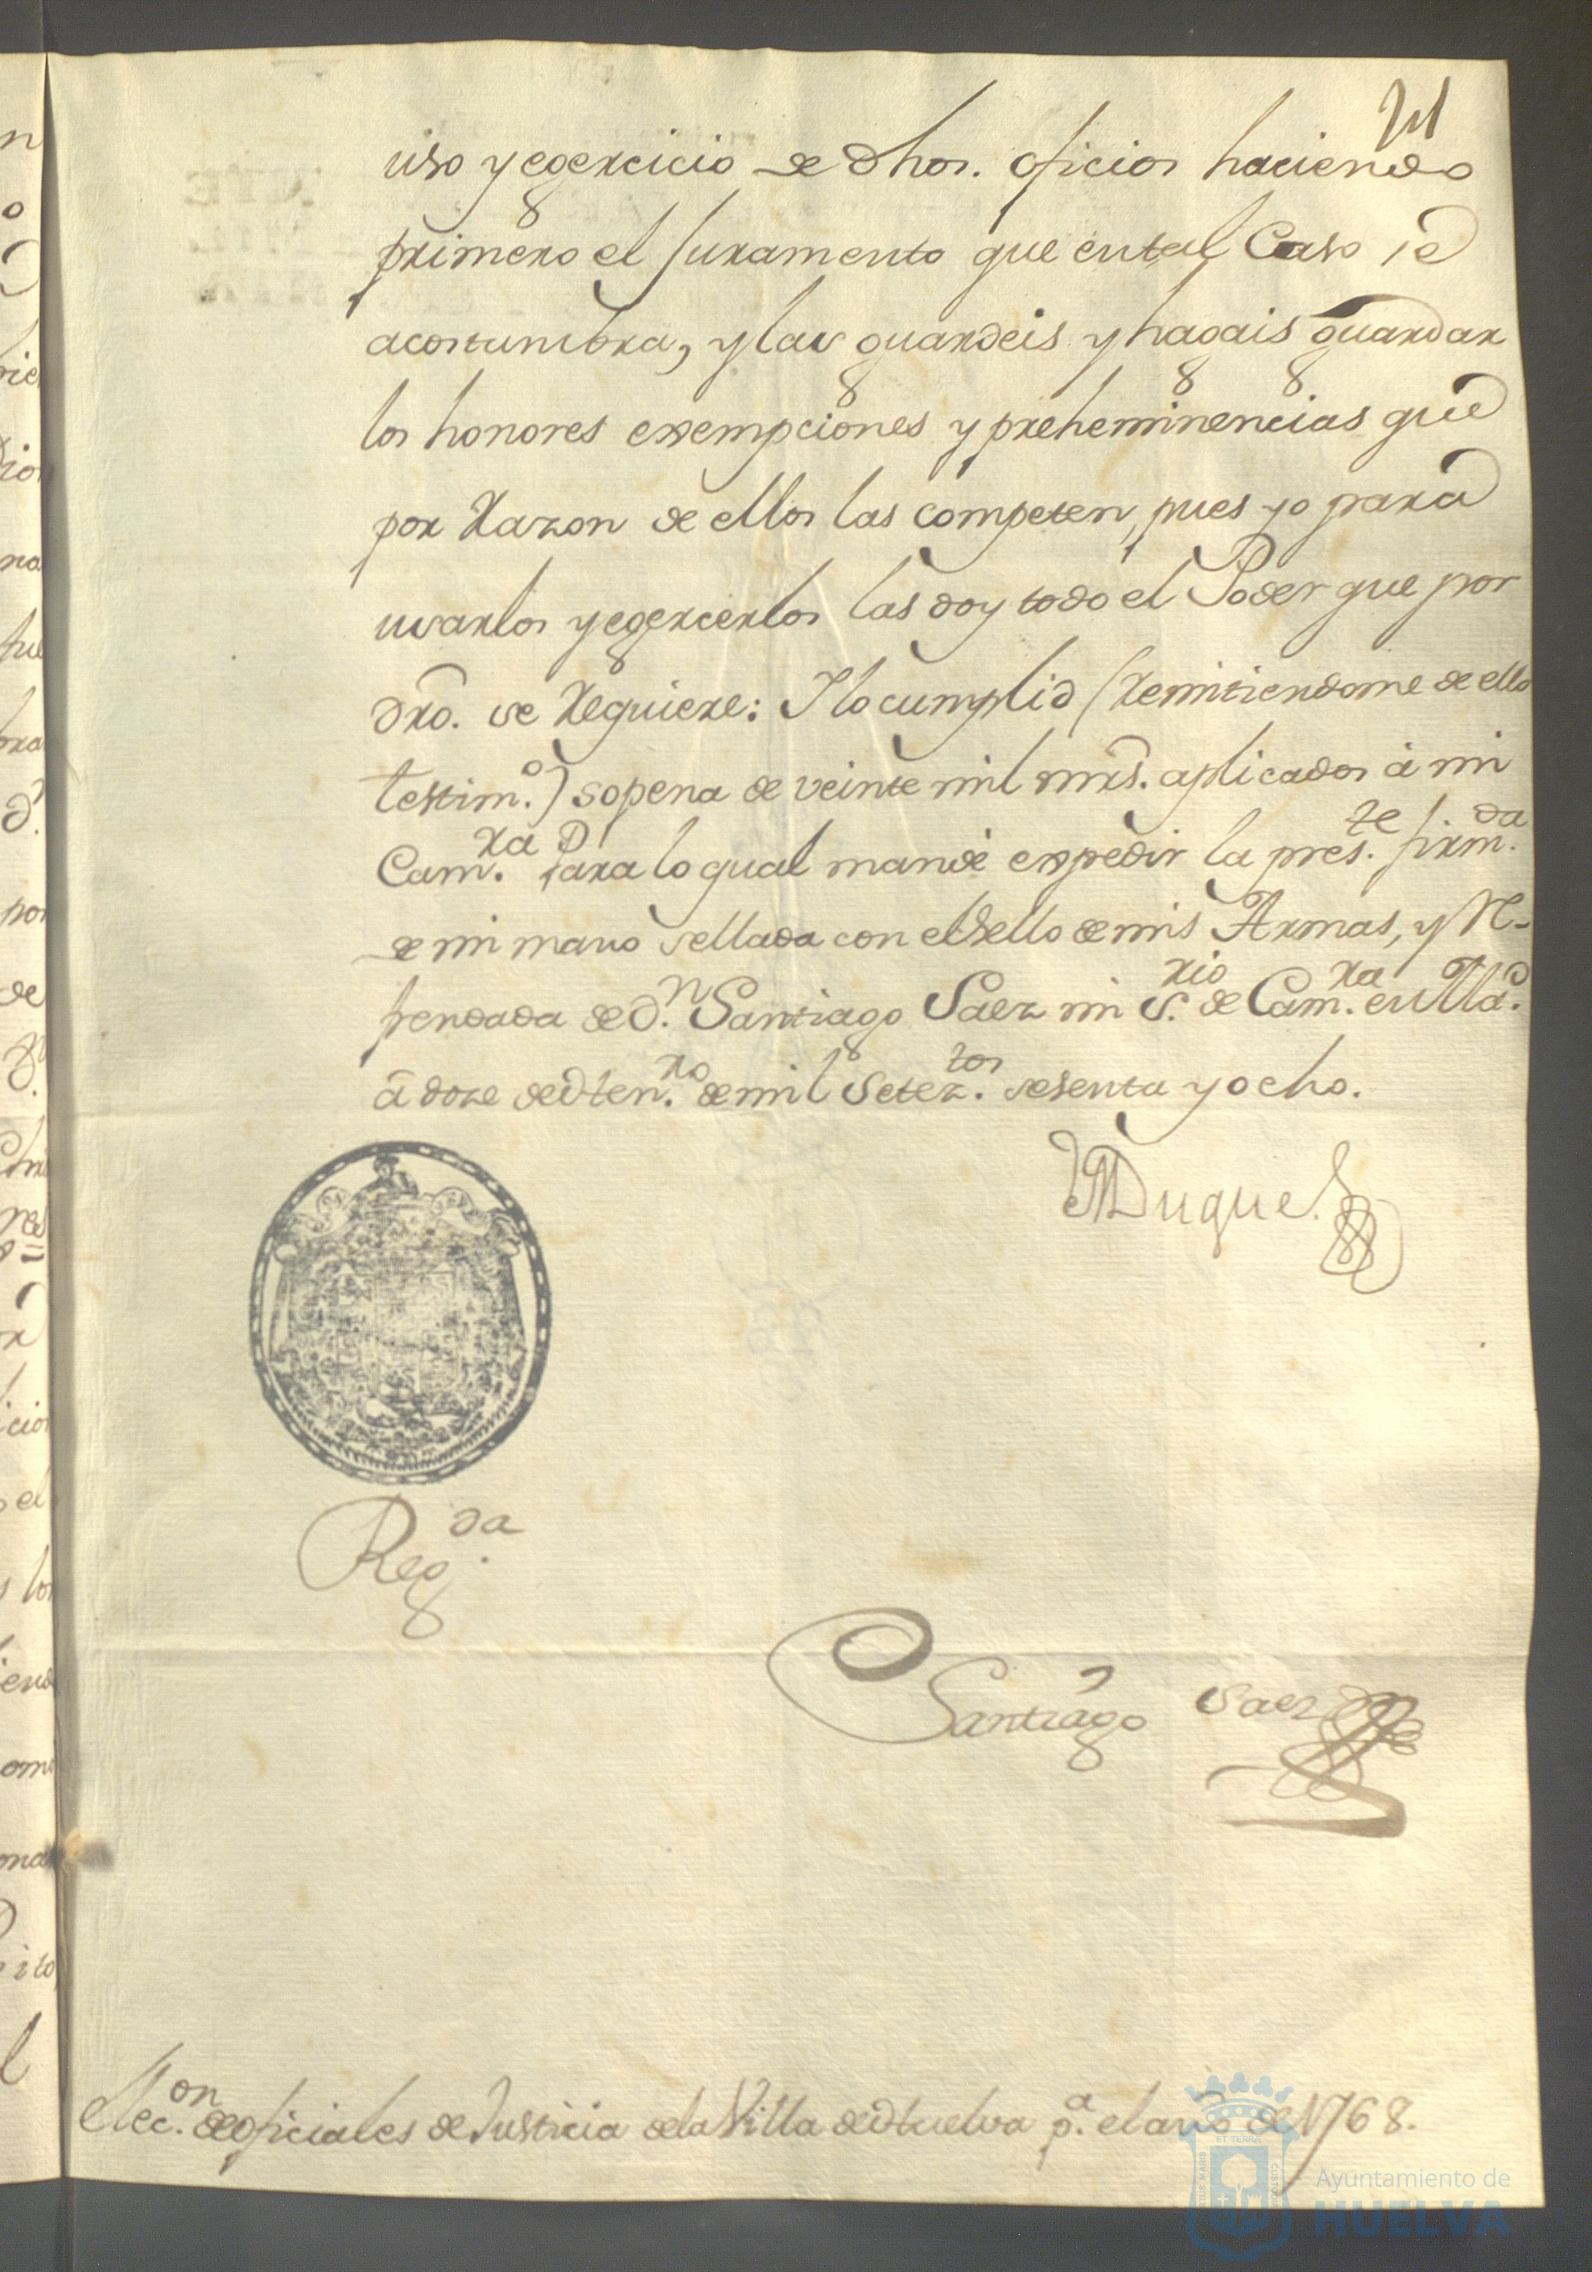 21
uso y egercicio de dhos. oficios haciendo
primero el Juramento que en tal Caso se
acostumbra, y las guardeis y hagais guardar
los honores exempciones y preheminencias que
por Razon de ellos las competen, pues yo para
usarlos y egercerlos las doy todo el Poder que por
dro. se Requiere: Y lo cumplid (Remitiendome de ello
testim.º) so pena de veinte mil mrs. aplicados à mi
Cam.ra Para lo qual mandè expedir la pres.te firm.da
de mi mano sellada con el Sello de mis Armas, y Re-
frendada de D.n Santiago Saez mi S.rio de Cam.ra en Md.
à doze de Hen.ro de mil Setez.tos sesenta y ocho.
El Duque
Reg.da
Santiago Saez
Elec.on de oficiales de Justicia de la Villa de Huelva p.a el año de 1768.
ET TERRÆ
PORTUS MARIS
CUSTODIA
Ayuntamiento de
HUELVA